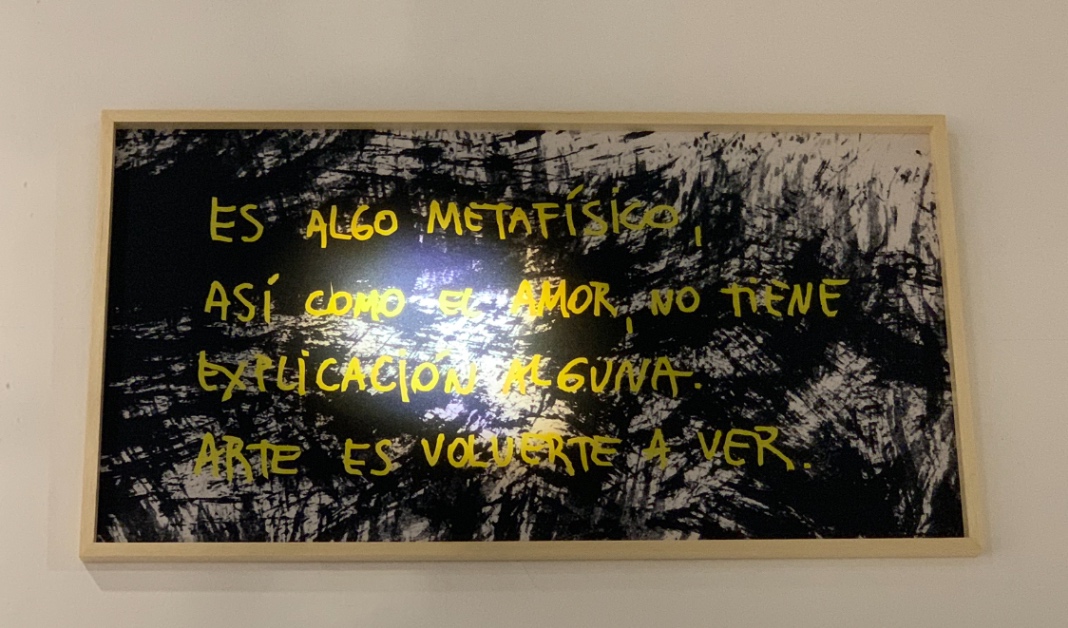 ES ALGO METAFÍSICO,
ASÍ COMO EL AMOR, NO TIENE
EXPLICACIÓN ALGUNA.
ARTE ES VOLVERTE A VER.